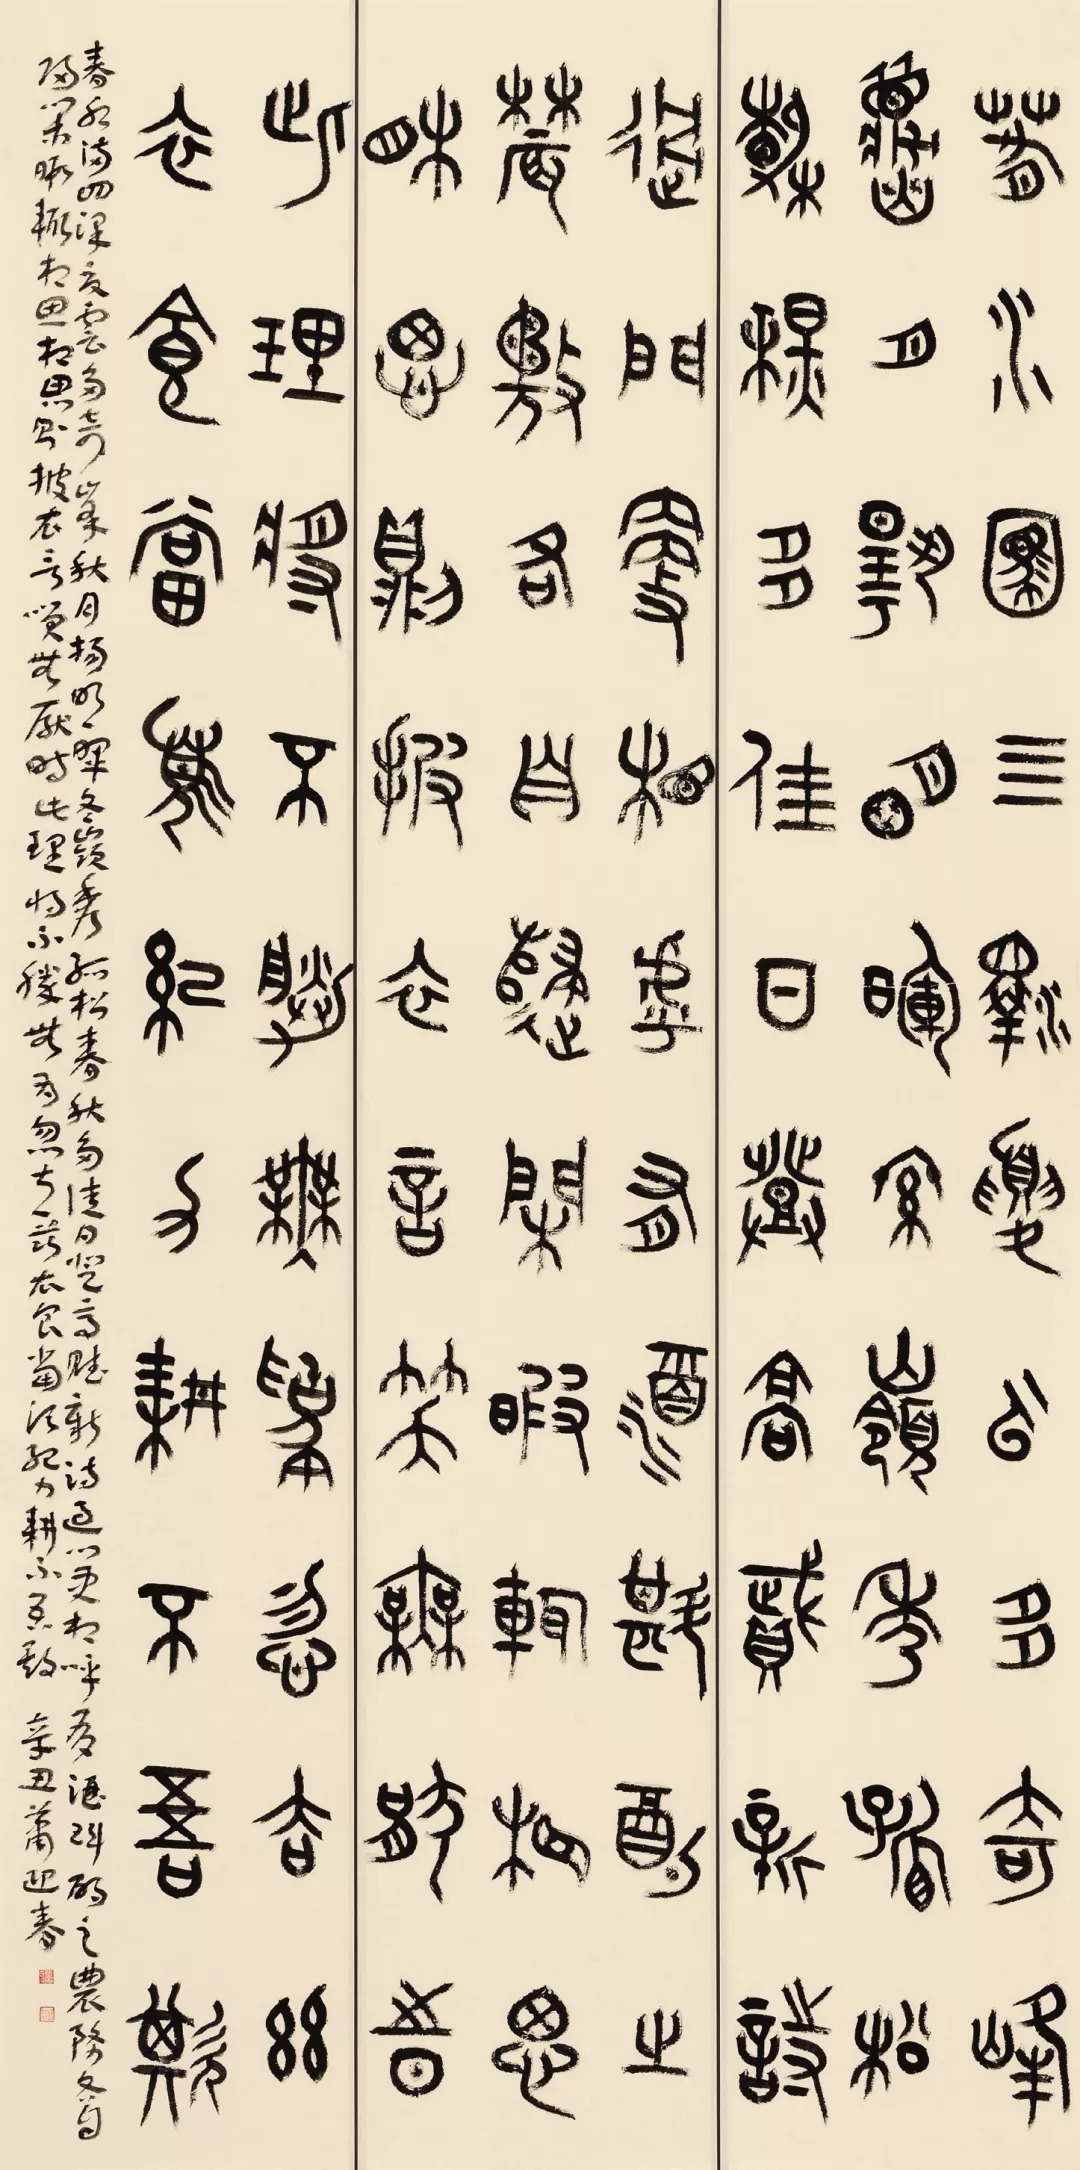 春水滿四澤夏雲多奇峰
秋月揚明暉冬嶺秀孤松
春秋多佳日登高賦新詩
過門更相呼有酒斟酌之
農務各自歸閒暇輒相思
相思則披衣言笑無厭時
此理將不勝無為忽去茲
衣食當須紀力耕不吾欺
春水滿四澤夏雲多奇峰秋月揚明暉冬嶺秀孤松春秋多佳日登高賦新詩過門更相呼有酒斟酌之農務各自
歸閒暇輒相思相思則披衣言笑無厭時此理將不勝無為忽去茲衣食當須紀力耕不吾欺 辛丑蕭迎春